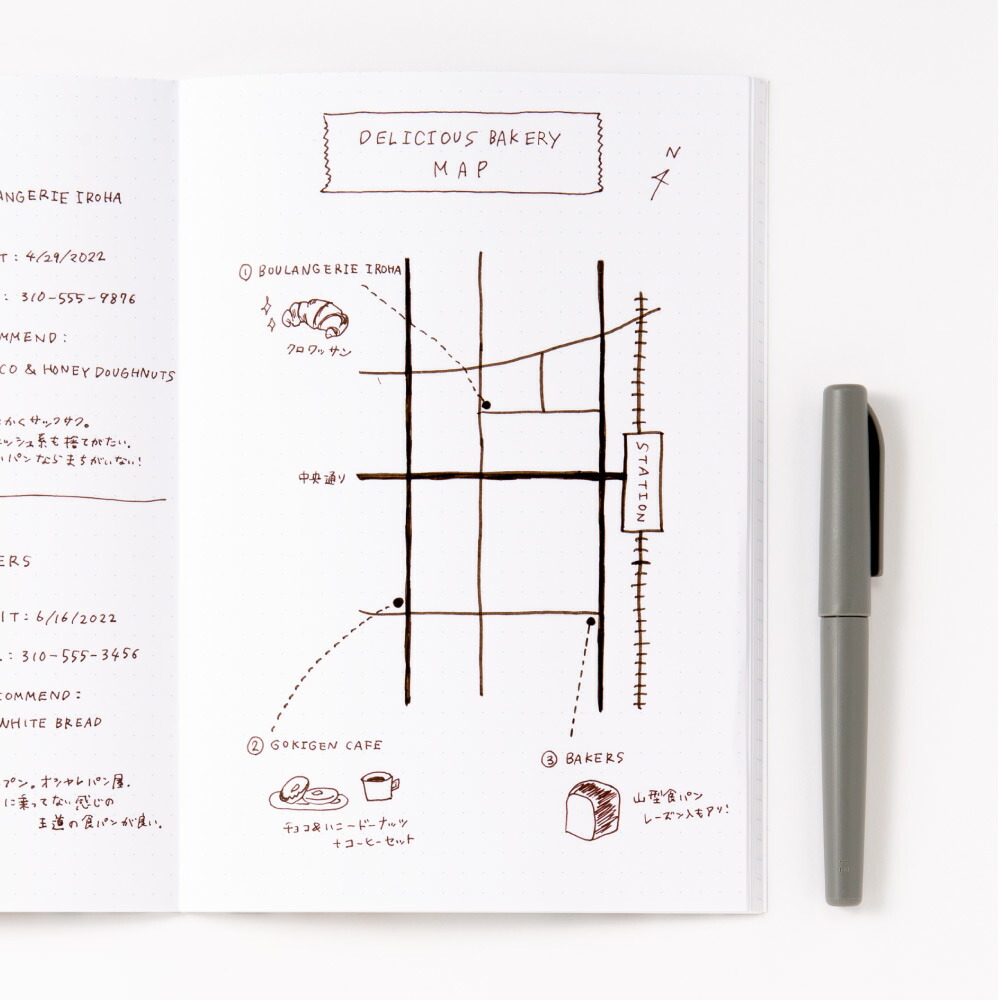 ANGERIE IROHA
T : 4/29/2022
: 310-555-9876
MMEND :
CO & HONEY DOUGHNUTS
かくサックサク。
ッシュ系も捨てがたい。
いパンならまちがいない!
ERS
IT : 6/16/2022
. : 310-555-3456
COMMEND :
WHITE BREAD
プン。オシャレパン屋.
に乗ってない感じの
王道の食パンが良い。
DELICIOUS BAKERY
MAP
N
① BOULANGERIE IROHA
クロワッサン
中央通り
STATION
② GOKIGEN CAFE
チョコ&ハニードーナッツ
+コーヒーセット
③ BAKERS
山型食パン
レーズン入もアリ!